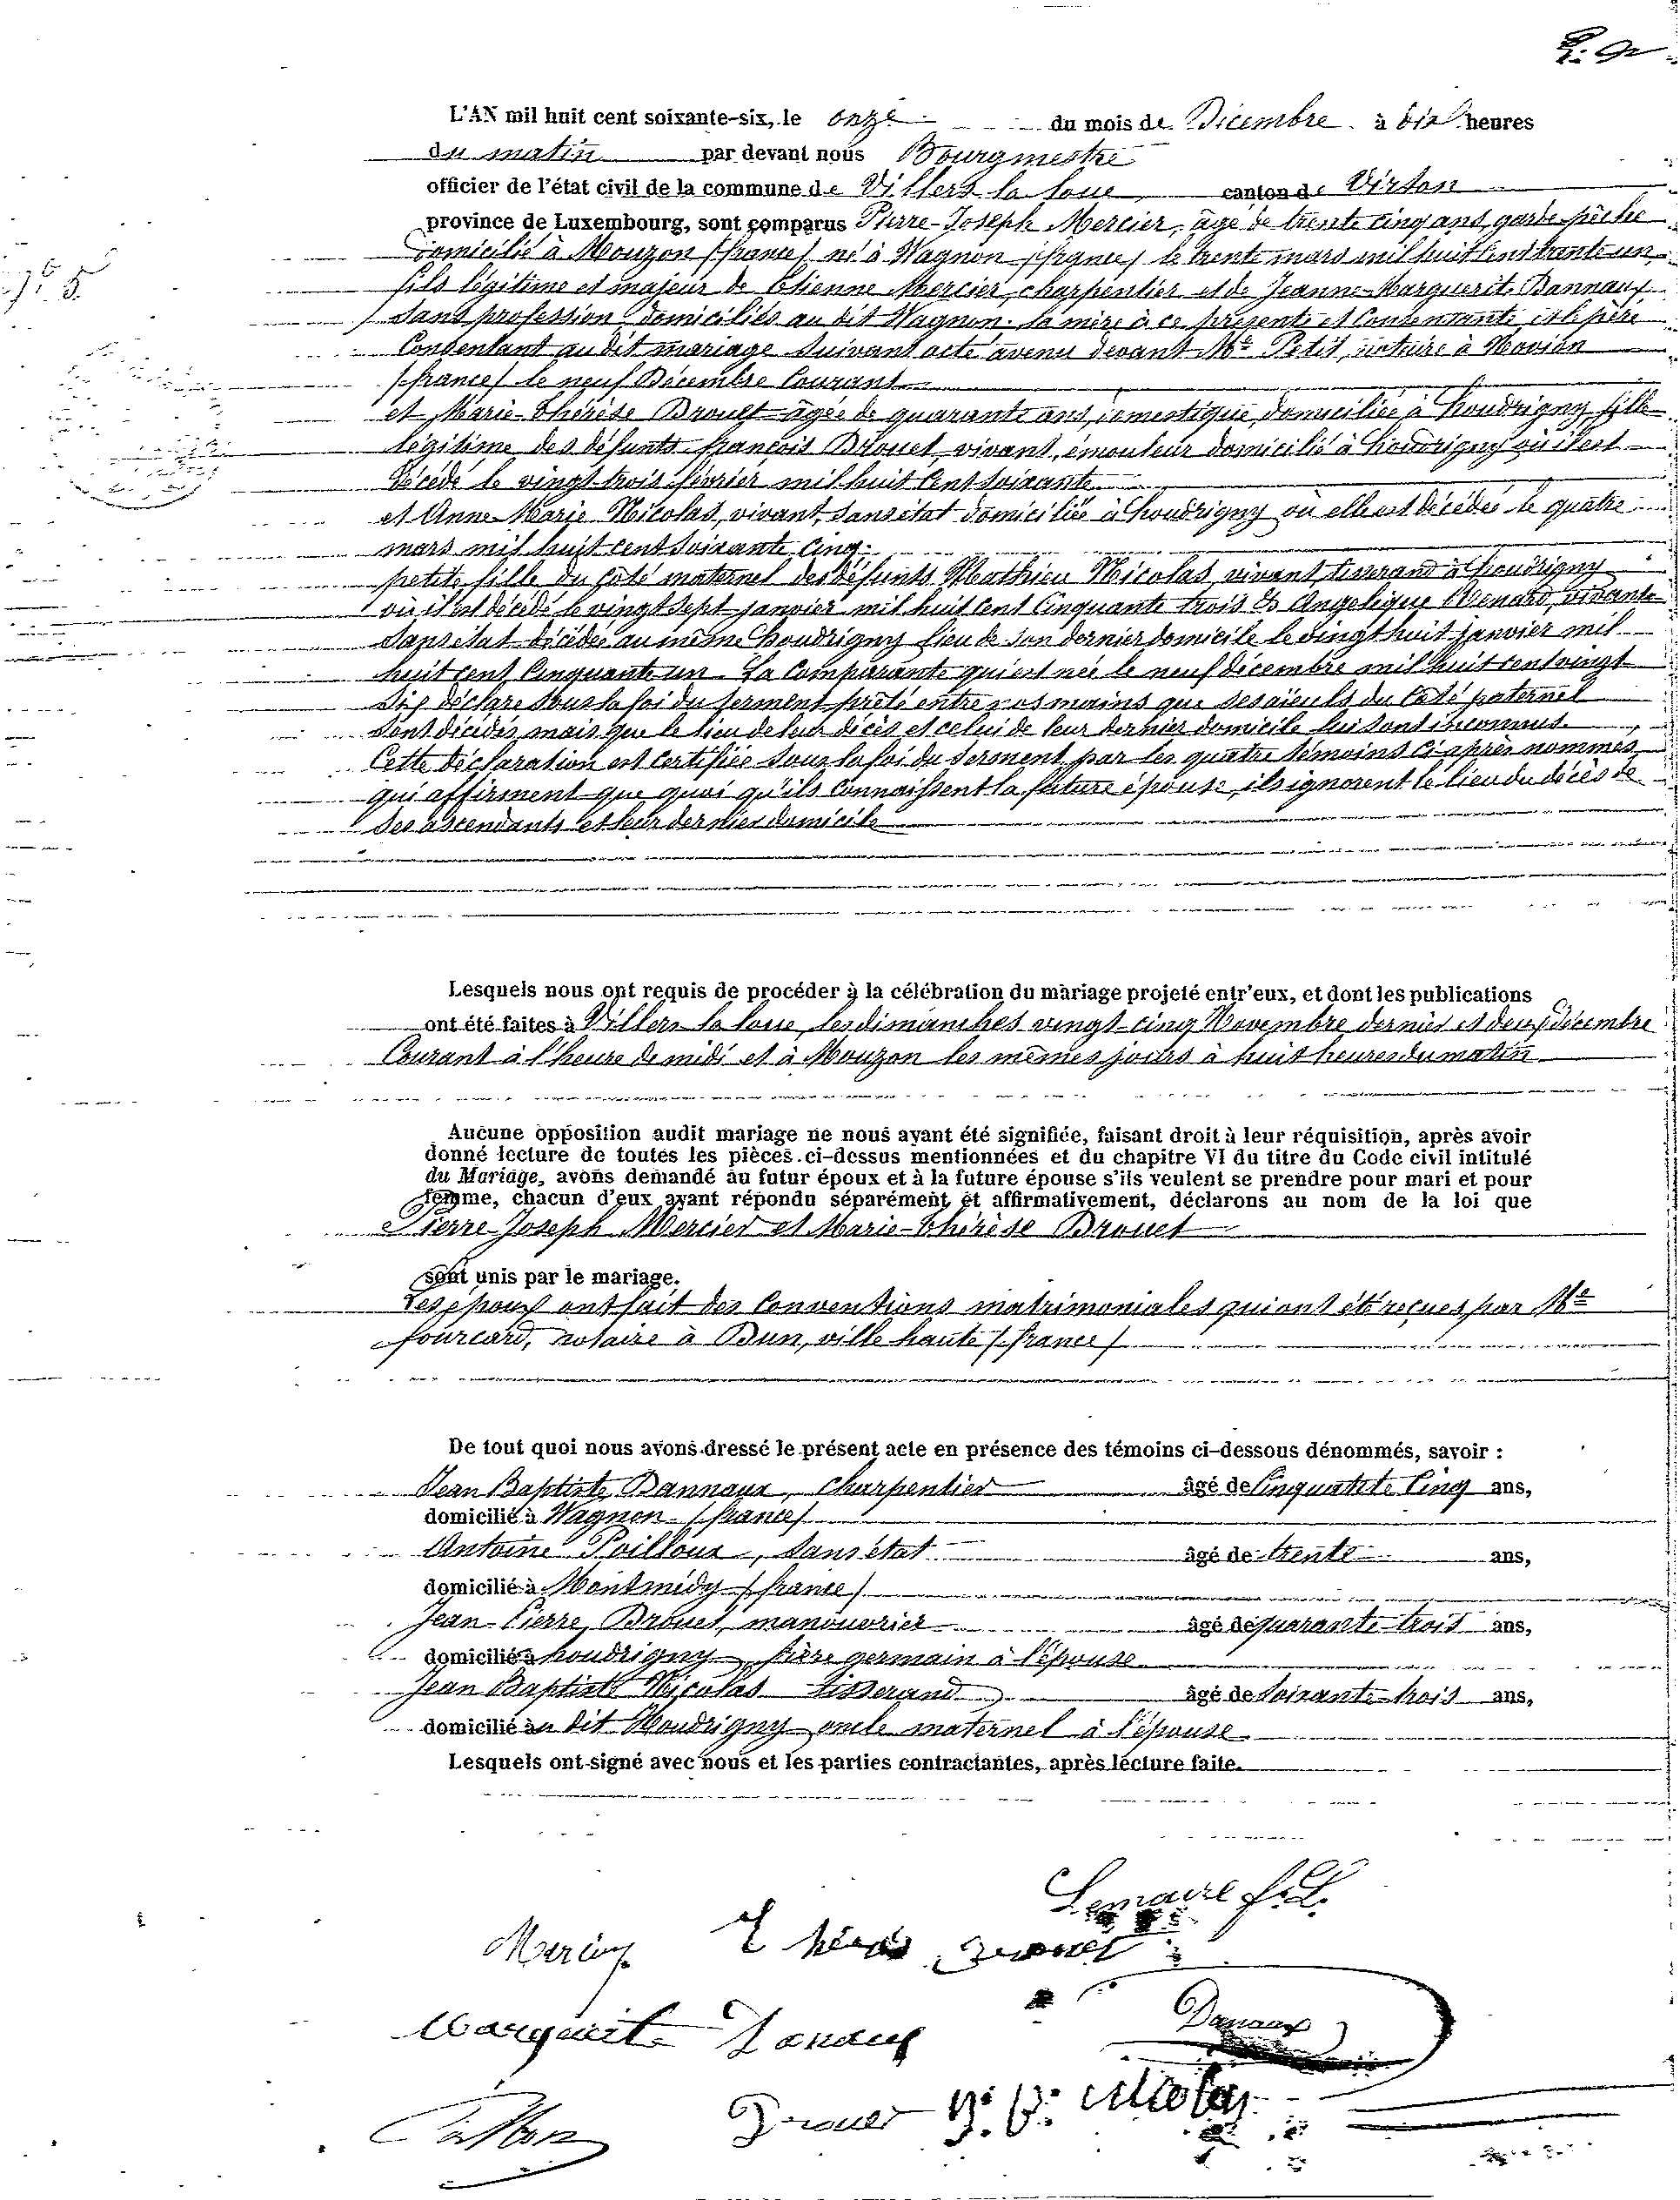 L'AN mil huit cent soixante-six, le onze du mois de Décembre à dix heures
du matin par devant nous Bourgmestre
officier de l'état civil de la commune de Villers la loue canton de Virton
province de Luxembourg, sont comparus Pierre-Joseph Mercier, âgé de trente cinq ans, garde pêche
domicilié à Mouzon (france) né à Wagnon (france) le trente mars mil huit cent trente un
fils légitime et majeur de Etienne Mercier, charpentier et de Jeanne-Marguerite Bannaux
sans profession domiciliés au dit Wagnon. la mère à ce présente et Consentante, et le père
Consentant au dit mariage suivant acte avenu devant Me Petit, notaire à Novion
(france) le neuf Décembre Courant
et Marie-Thérèse Brouet âgée de quarante ans, domestique, domiciliée à houdrigny fille
légitime des défunts françois Brouet, vivant, émouleur domicilié à houdrigny où il est
Décédé le vingt trois février mil huit Cent soixante
et Anne-Marie Nicolas, vivant, sans état domiciliée à houdrigny où elle est décédée le quatre
mars mil huit cent soixante cinq.
petite fille du Coté maternel des défunts Mathieu Nicolas, vivant tisserand à houdrigny
où il est décédé le vingt sept janvier mil huit Cent Cinquante trois & Angelique Menard, vivante
sans état décédée au même houdrigny lieu de son dernier domicile le vingt huit janvier mil
huit cent Cinquante un. La Comparante qui est née le neuf décembre mil huit cent vingt
six déclare sous la foi du serment prêté entre nos mains que ses aïeuls du Coté paternel
sont décédés mais que le lieu de leur décès et celui de leur dernier domicile lui sont inconnus.
Cette déclaration est Certifiée sous la foi du serment par les quatre témoins ci-après nommés
qui affirment que quoi qu'ils Connaissent la future épouse, ils ignorent le lieu du décès de
ses ascendants et leur dernier domicile
Lesquels nous ont requis de procéder à la célébration du mariage projeté entr'eux, et dont les publications
ont été faites à Villers la loue, les dimanches vingt-cinq Novembre dernier et deux décembre
Courant à l'heure de midi et à Mouzon les mêmes jours à huit heures du matin
Aucune opposition audit mariage ne nous ayant été signifiée, faisant droit à leur réquisition, après avoir
donné lecture de toutes les pièces ci-dessus mentionnées et du chapitre VI du titre du Code civil intitulé
du Mariage, avons demandé au futur époux et à la future épouse s'ils veulent se prendre pour mari et pour
femme, chacun d'eux ayant répondu séparément et affirmativement, déclarons au nom de la loi que
Pierre-Joseph Mercier et Marie-Thérèse Brouet
sont unis par le mariage.
Les époux ont fait des Conventions matrimoniales qui ont été reçues par Me
fourcard, notaire à Dun, ville haute (france)
De tout quoi nous avons dressé le présent acte en présence des témoins ci-dessous dénommés, savoir :
Jean Baptiste Bannaux, Charpentier âgé de Cinquante Cinq ans,
domicilié à Wagnon (france)
Antoine Poilloux, sans état âgé de trente ans,
domicilié à Montmédy (france)
Jean-Pierre Brouet, manouvrier âgé de quarante-trois ans,
domicilié à houdrigny, frère germain à l'épouse
Jean Baptiste Nicolas tisserand âgé de soixante-trois ans,
domicilié au dit houdrigny oncle maternel à l'épouse
Lesquels ont signé avec nous et les parties contractantes, après lecture faite.
Lemaire
Mercier Thérèse Brouet
Marguerite Danaux Danaux
Brouet J. B. Nicolas